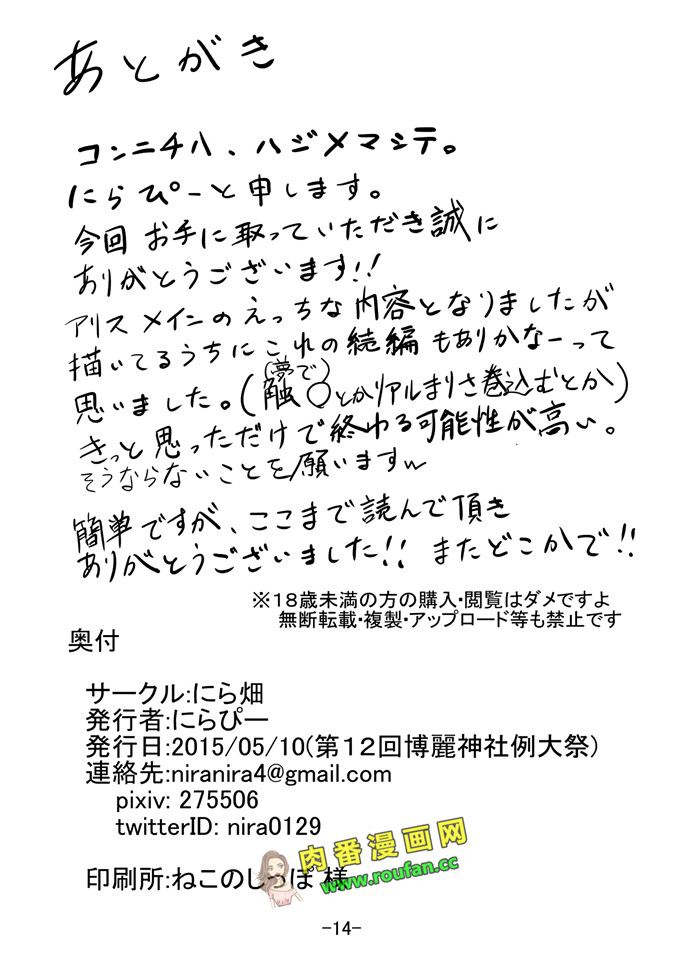 あとがき
コンニチハ、ハジメマシテ。
にらぴーと申します。
今回 お手に取っていただき誠に
ありがとうございます!!
アリスメインのえっちな内容となりましたが
描いてるうちにこれの続編もありかなーって
(夢で)
思いました。(触〇とかリアルまりさ巻込むとか)
きっと思っただけで終わる可能性が高い。
そうならないことを願いますw
簡単ですが、ここまで読んで頂き
ありがとうございました!! またどこかで!!
※18歳未満の方の購入・閲覧はダメですよ
無断転載・複製・アップロード等も禁止です
奥付
サークル:にら畑
発行者:にらぴー
発行日:2015/05/10(第12回博麗神社例大祭)
連絡先:niranira4@gmail.com
pixiv: 275506
twitterID: nira0129
肉番漫画网
www.roufan.cc
印刷所:ねこのしっぽ 様
-14-